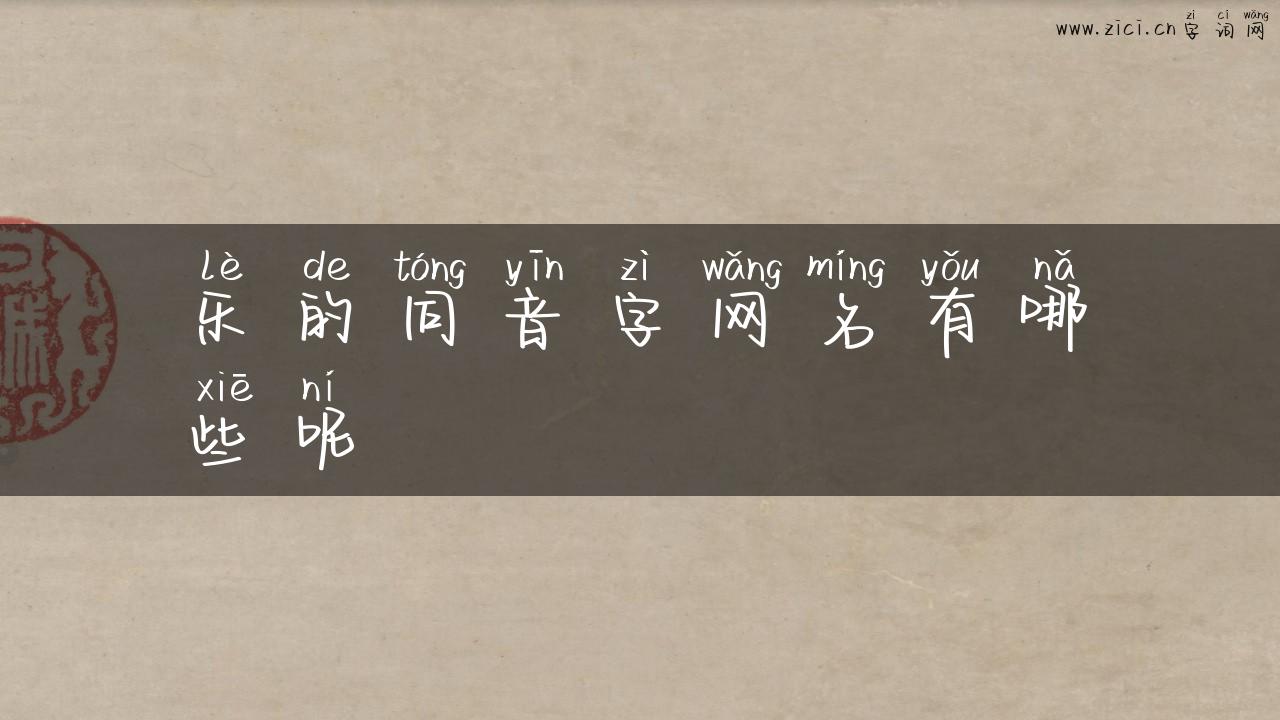 zì cí wǎng
www.zici.cn 字词网
lè de tóng yīn zì wǎng míng yǒu nǎ
乐的同音字网名有哪
xiē ní
些呢